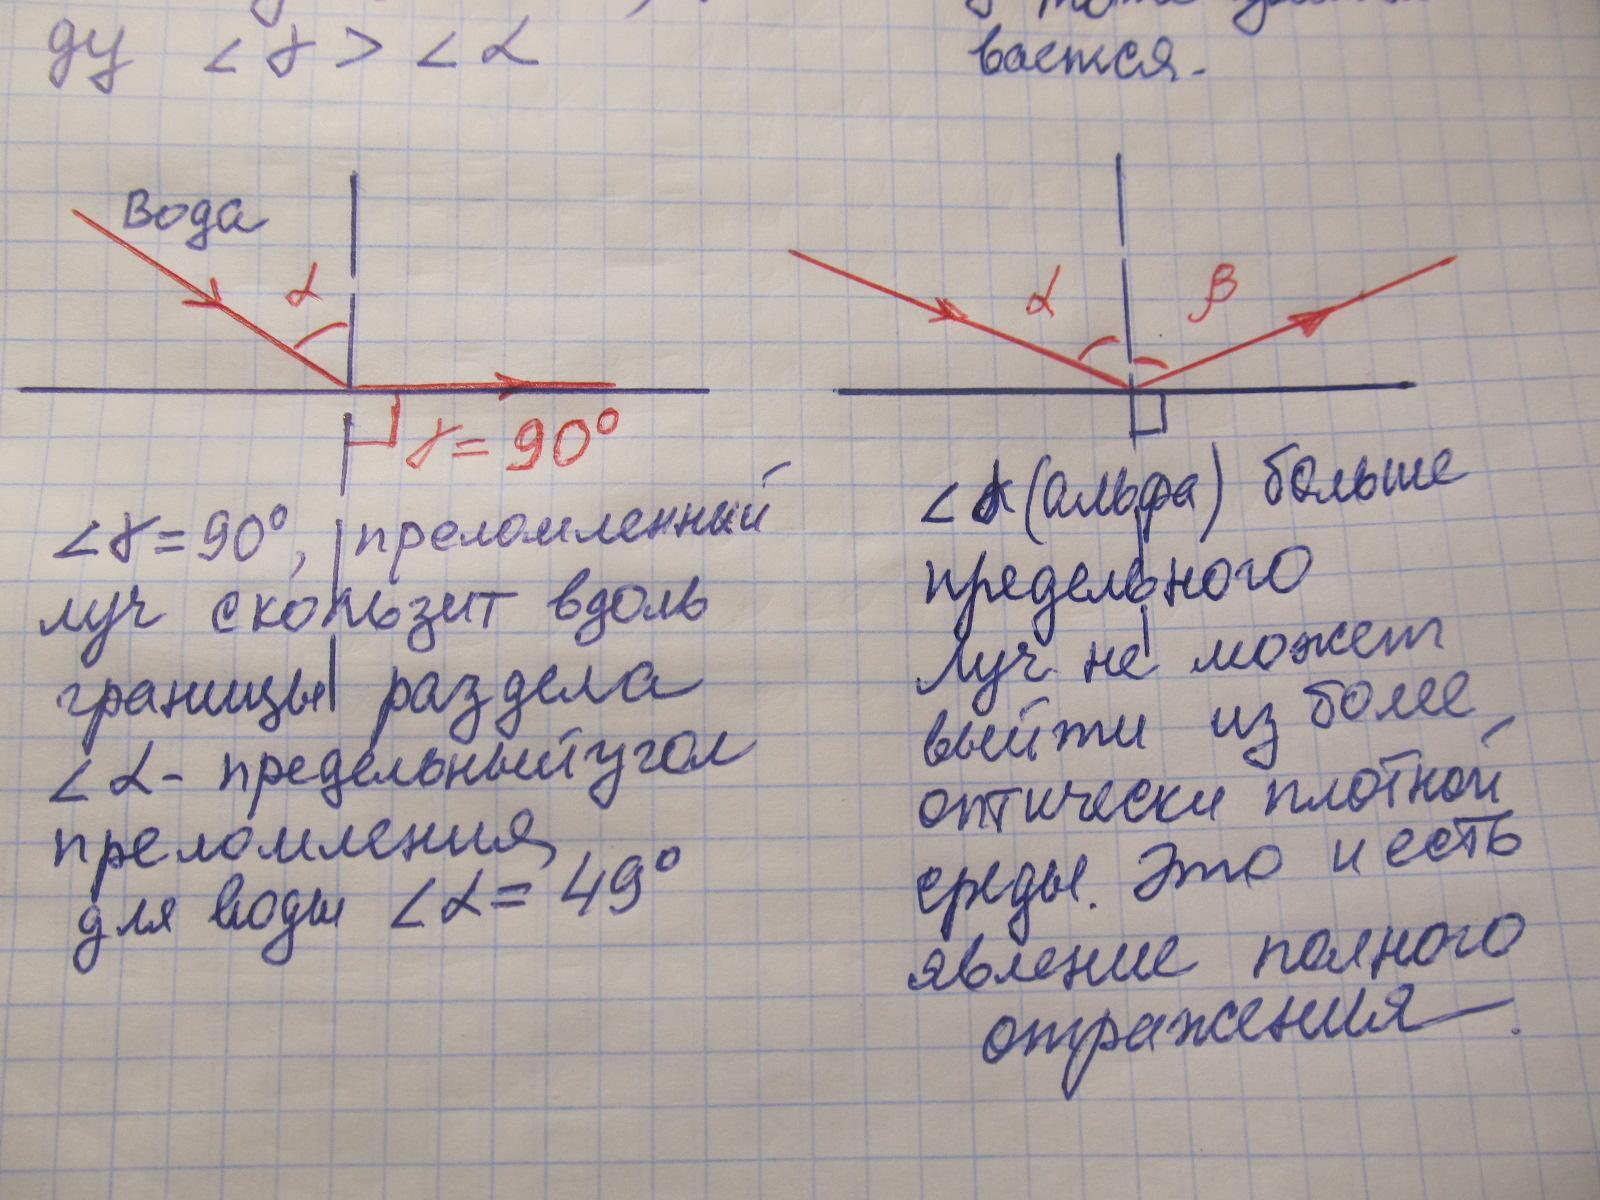 ду ∠γ > ∠α
вается.
Вода
α
γ = 90°
∠γ = 90°, преломленный
луч скользит вдоль
границы раздела
∠α - предельный угол
преломления
для воды ∠α = 49°
α β
∠α (альфа) больше
предельного
Луч не может
выйти из более
оптически плотной
среды. Это и есть
явление полного
отражения.